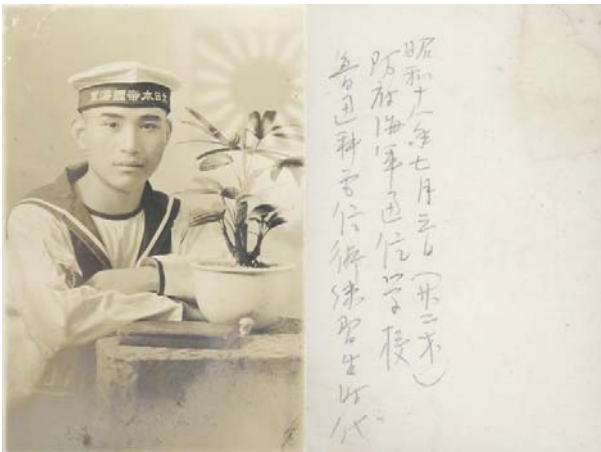 大日本帝國海軍
昭和十八年七月三日(廿二才)
防府海軍通信学校
普通科電信術練習生時代